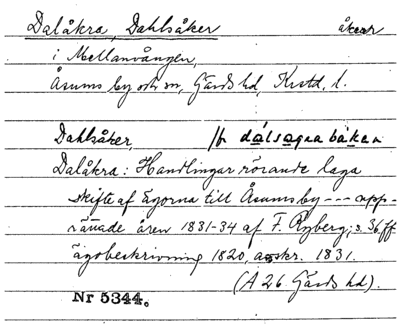 Dalåkra, Dahlsåker åkrar
i Mellanvången,
Åsums by och sn, Gärds hd, Krstd. l.
Dahlsåker, /fr dálsagna bákan
Dalåkra: Handlingar rörande laga
skifte af ägorna till Åsums by --- upp-
rättade åren 1831-34 af F. Ryberg; s. 36 ff
ägobeskrivning 1820, avskr. 1831.
(A 26 Gärds hd).
Nr 5344.